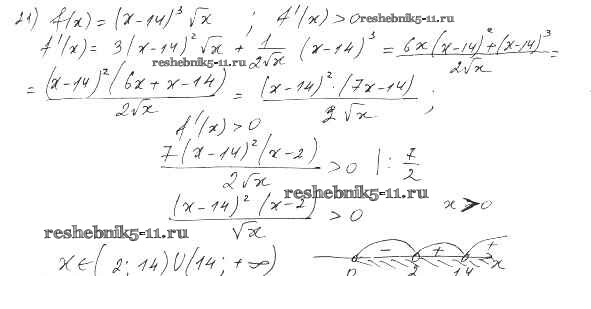 21) f(x) = (x-14)³ √x ; f'(x) > 0 reshebnik5-11.ru
f'(x) = 3(x-14)² √x + 1/(2√x) (x-14)³ = (6x(x-14)² + (x-14)³)/(2√x) =
reshebnik5-11.ru
= ((x-14)² (6x + x - 14))/(2√x) = ((x-14)² · (7x-14))/(2√x) ;
f'(x) > 0
(7(x-14)² (x-2))/(2√x) > 0 | : 7/2
reshebnik5-11.ru
((x-14)² (x-2))/√x > 0 x > 0
reshebnik5-11.ru
x ∈ (2; 14) ∪ (14; +∞)
- + +
0 2 14 x